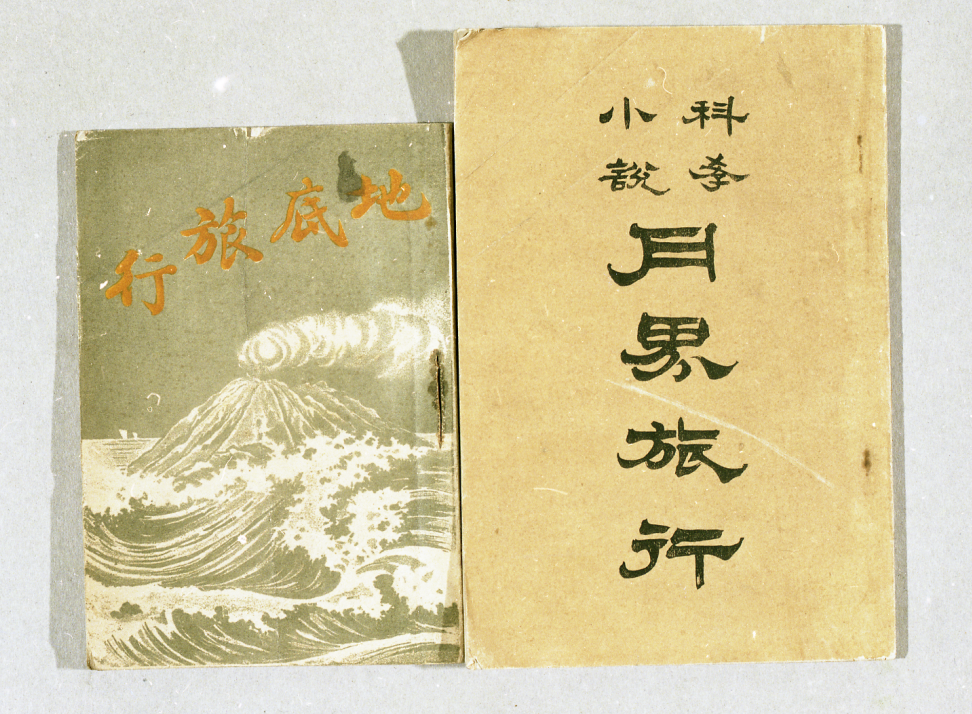 地底旅行
科斈
小說
月界旅行